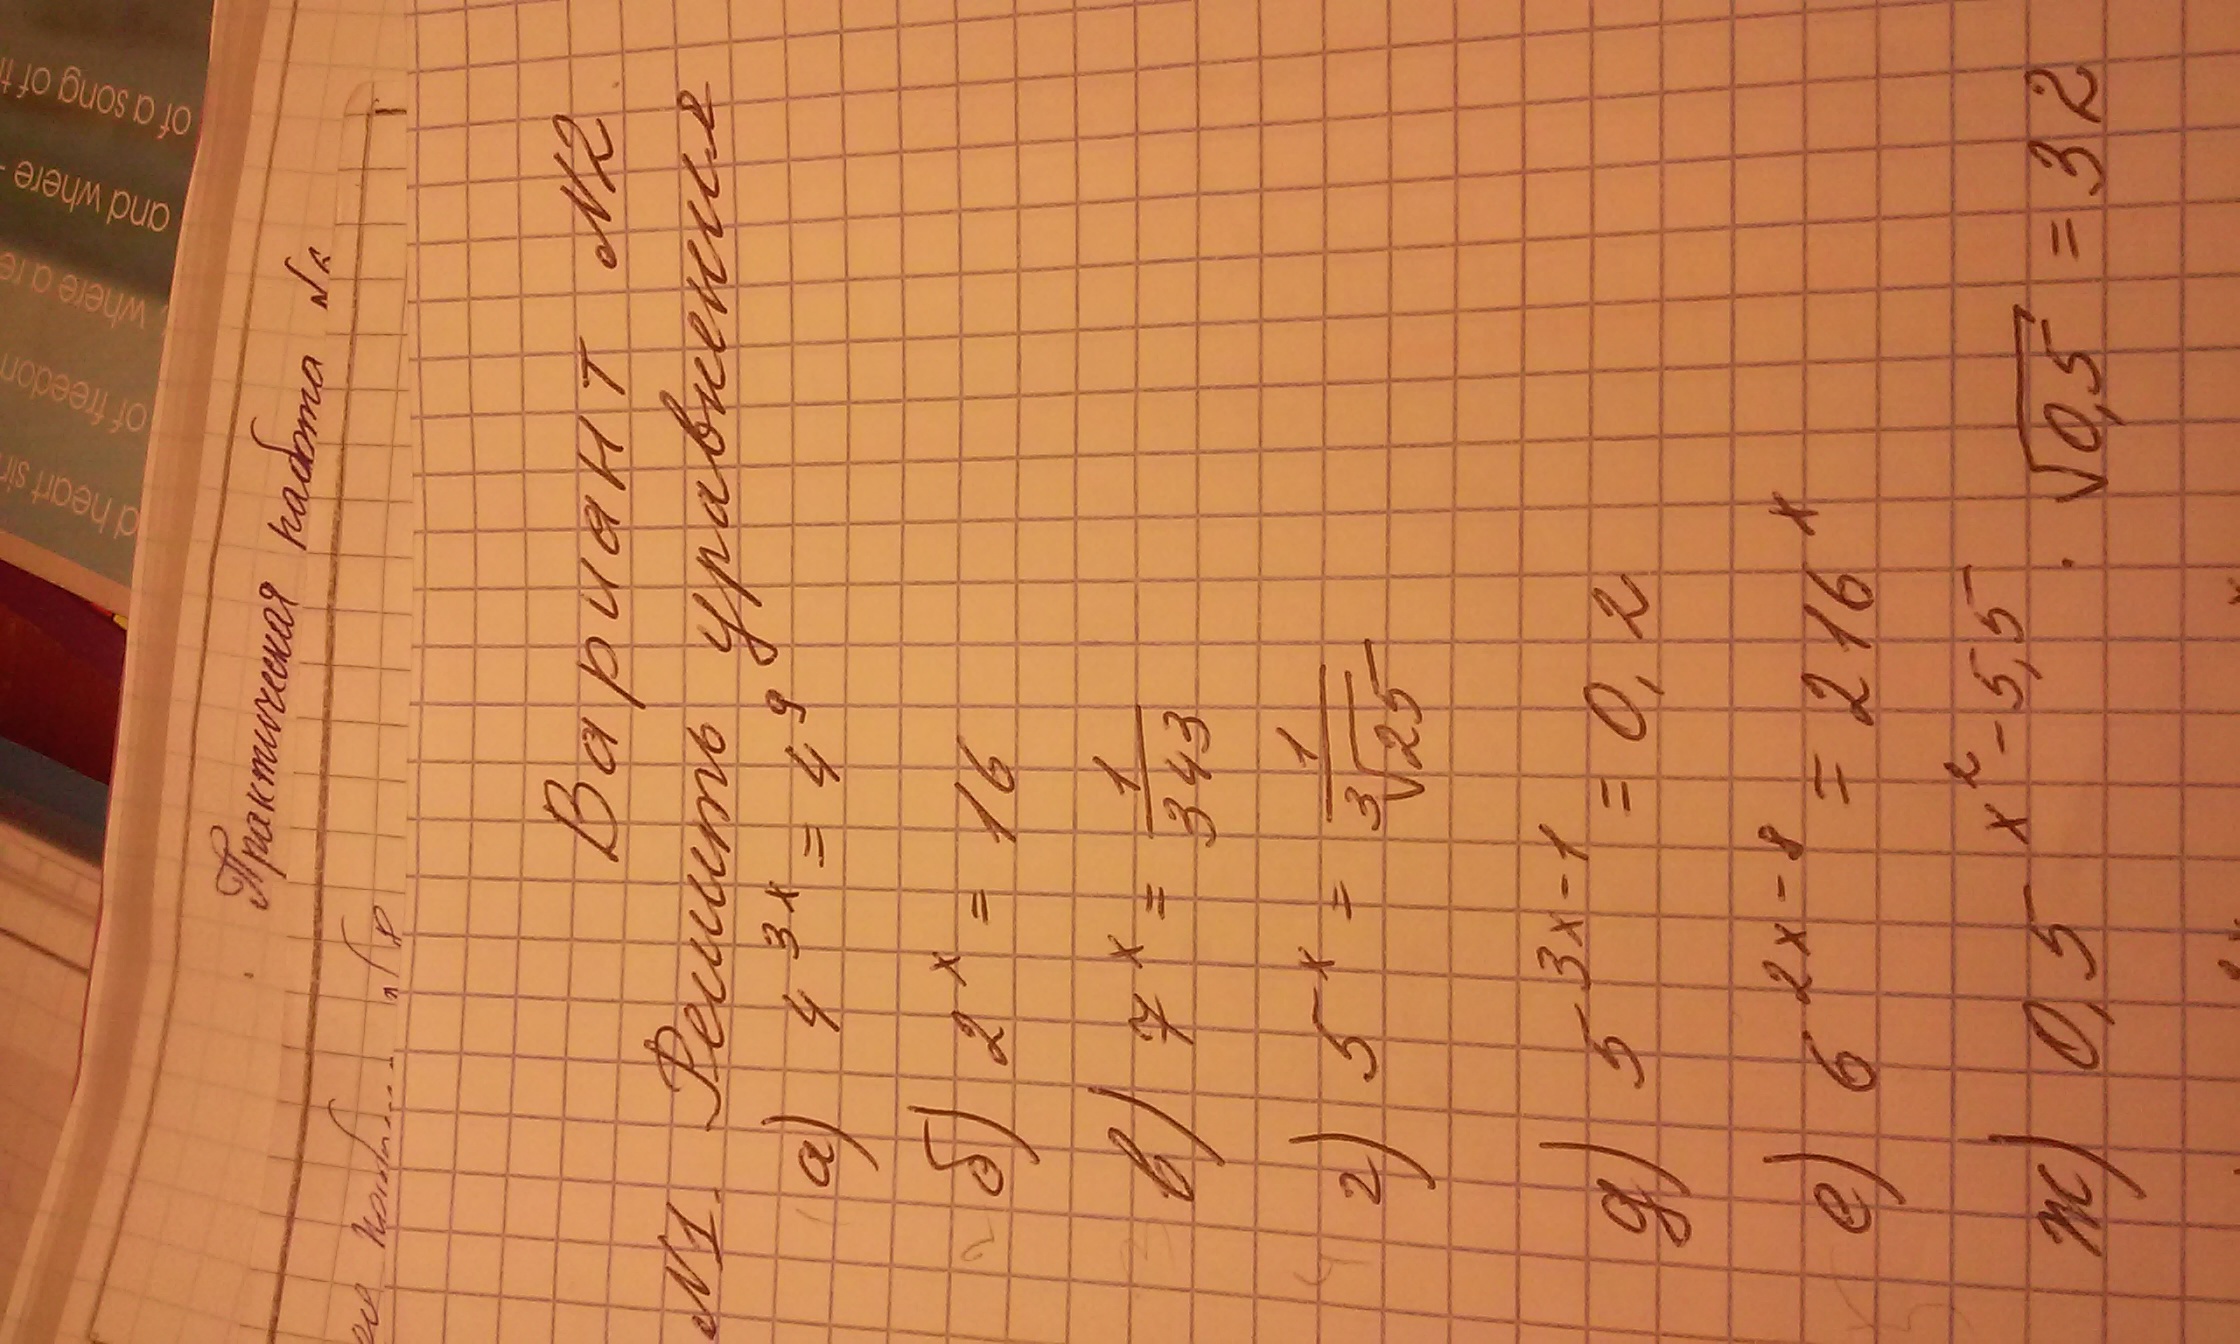 of a song of
and where
where a
of freedom
heart
Практическая работа
Вариант №2
№1. Решить уравнения
а) 4^{3x} = 4^9
б) 2^x = 16
в) 7^x = \frac{1}{343}
г) 5^x = \frac{1}{\sqrt[3]{25}}
д) 5^{3x-1} = 0,2
е) 6^{2x-8} = 216^x
ж) 0,5^{x^2-5,5} · √0,5 = 32